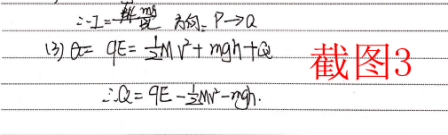 ∴I= mg/BL 方向: P→Q
(3) qE=½Mv²+mgh+Q
∴Q=qE-½Mv²-mgh.
截图3